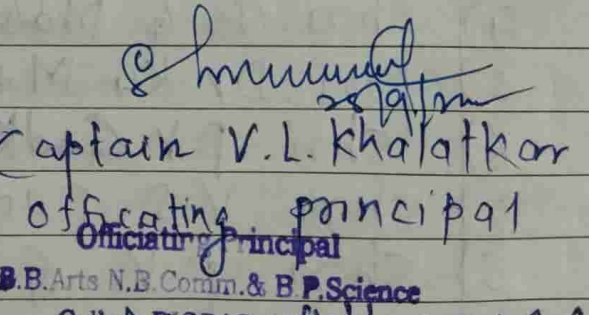 Captain V.L. Khalatkar
officating principal
Officiating Principal
B.B.Arts N.B.Comm.& B.P.Science